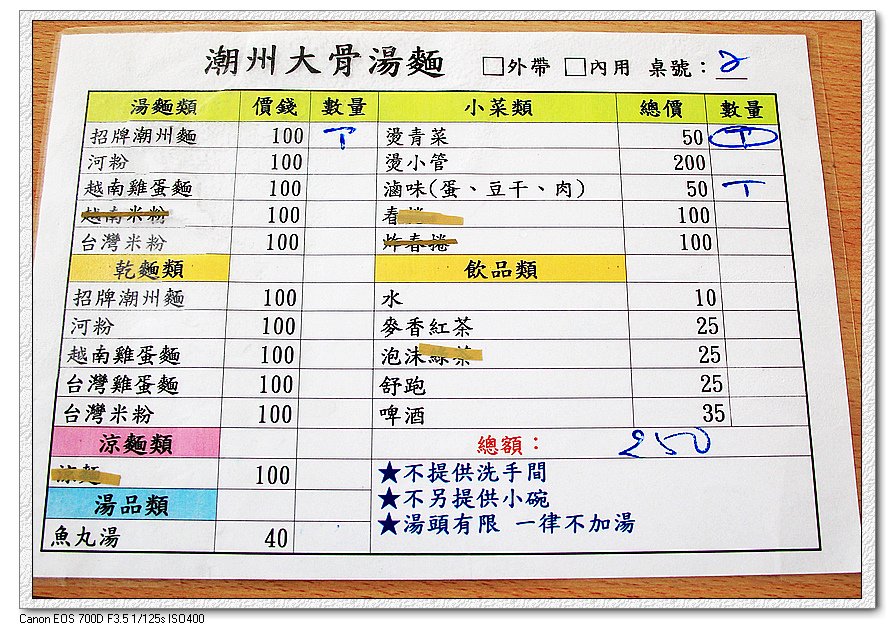 潮州大骨湯麵 □外帶 □內用 桌號：2
湯麵類 價錢 數量 小菜類 總價 數量
招牌潮州麵 100 T 燙青菜 50 T
河粉 100 燙小管 200
越南雞蛋麵 100 滷味(蛋、豆干、肉) 50 T
越南米粉 100 春捲 100
台灣米粉 100 炸春捲 100
乾麵類 飲品類
招牌潮州麵 100 水 10
河粉 100 麥香紅茶 25
越南雞蛋麵 100 泡沫綠茶 25
台灣雞蛋麵 100 舒跑 25
台灣米粉 100 啤酒 35
涼麵類 總額： 250
涼麵 100 ★不提供洗手間
湯品類 ★不另提供小碗
魚丸湯 40 ★湯頭有限 一律不加湯
Canon EOS 700D F3.5 1/125s ISO400